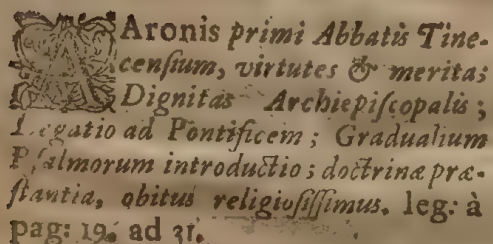 AAronis primi Abbatis Tine-
cenſium, virtutes & merita;
Dignitas Archiepiſcopalis;
Legatio ad Pontificem; Gradualium
Pſalmorum introductio; doctrinæ præ-
ſtantia, obitus religioſiſſimus. leg: à
pag: 19. ad 31.